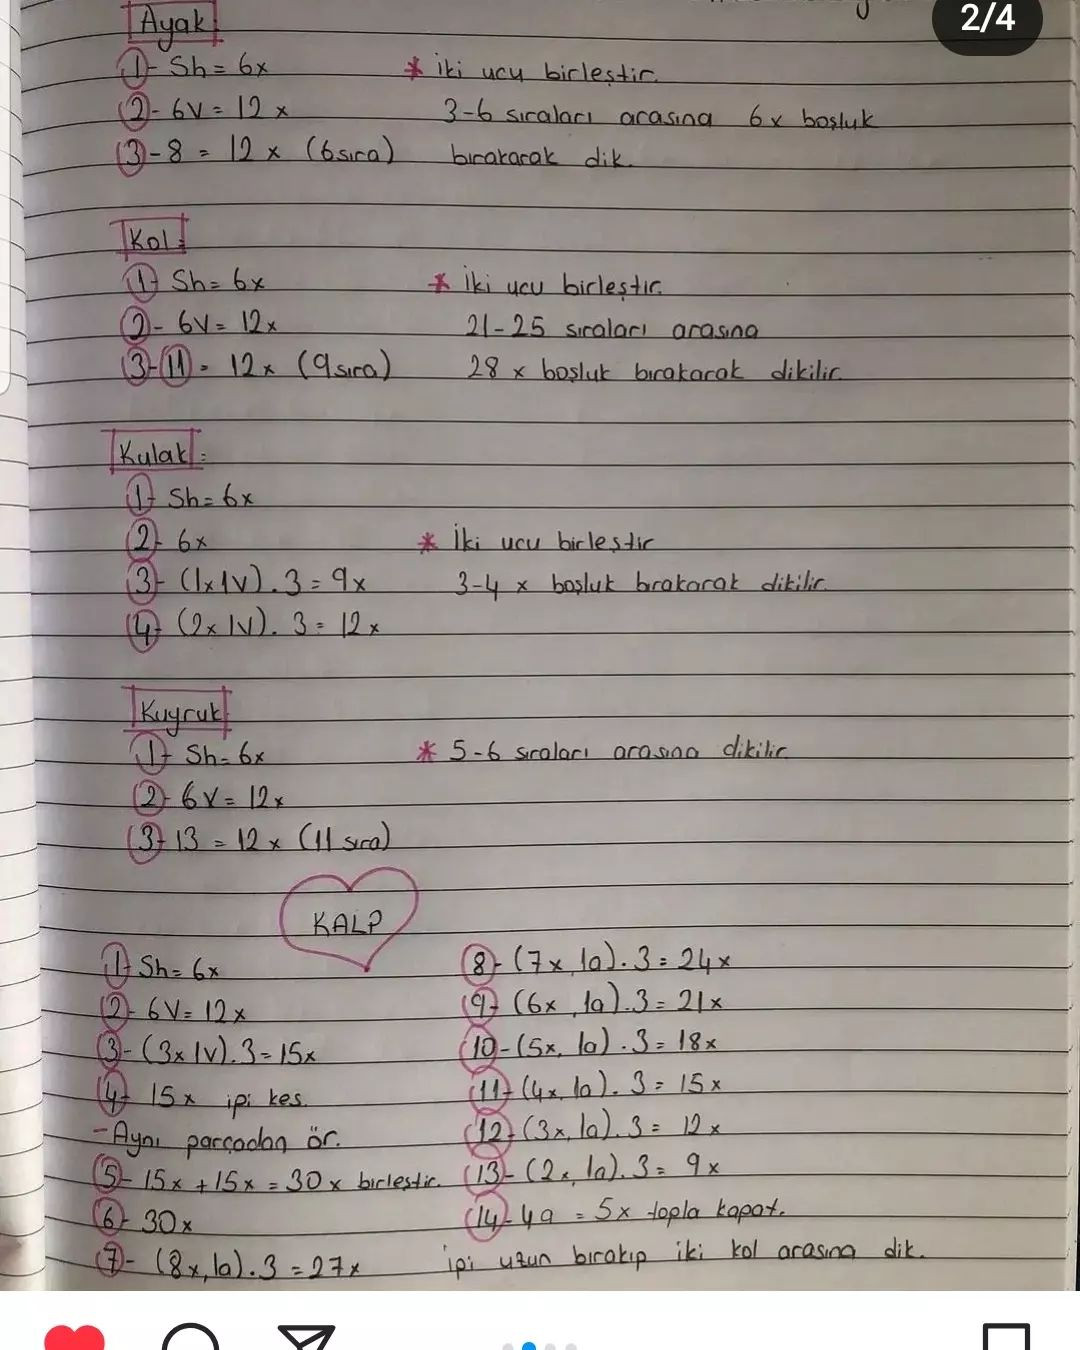 2/4
Ayak
1- Sh = 6x
2- 6V = 12x
3-8 = 12x (6 sıra)
* İki ucu birleştir.
3-6 sıraları arasına 6x boşluk
bırakarak dik.
Kol:
1- Sh = 6x
2- 6V = 12x
3-11 = 12x (9 sıra)
* İki ucu birleştir.
21-25 sıraları arasına
28 x boşluk bırakarak dikilir.
Kulak:
1- Sh = 6x
2- 6x
3- (1x1V).3 = 9x
4- (2x1V).3 = 12x
* İki ucu birleştir
3-4 x boşluk bırakarak dikilir.
Kuyruk
1- Sh = 6x
2- 6V = 12x
3-13 = 12x (11 sıra)
* 5-6 sıraları arasına dikilir.
KALP
1- Sh = 6x
2- 6V = 12x
3- (3x1V).3 = 15x
4- 15x ipi kes.
-Aynı parçadan ör.
5- 15x + 15x = 30x birleştir.
6- 30x
7- (8x,1a).3 = 27x
8- (7x,1a).3 = 24x
9- (6x,1a).3 = 21x
10- (5x,1a).3 = 18x
11- (4x,1a).3 = 15x
12- (3x,1a).3 = 12x
13- (2x,1a).3 = 9x
14- 4a = 5x topla kapat.
ipi uzun bırakıp iki kol arasına dik.